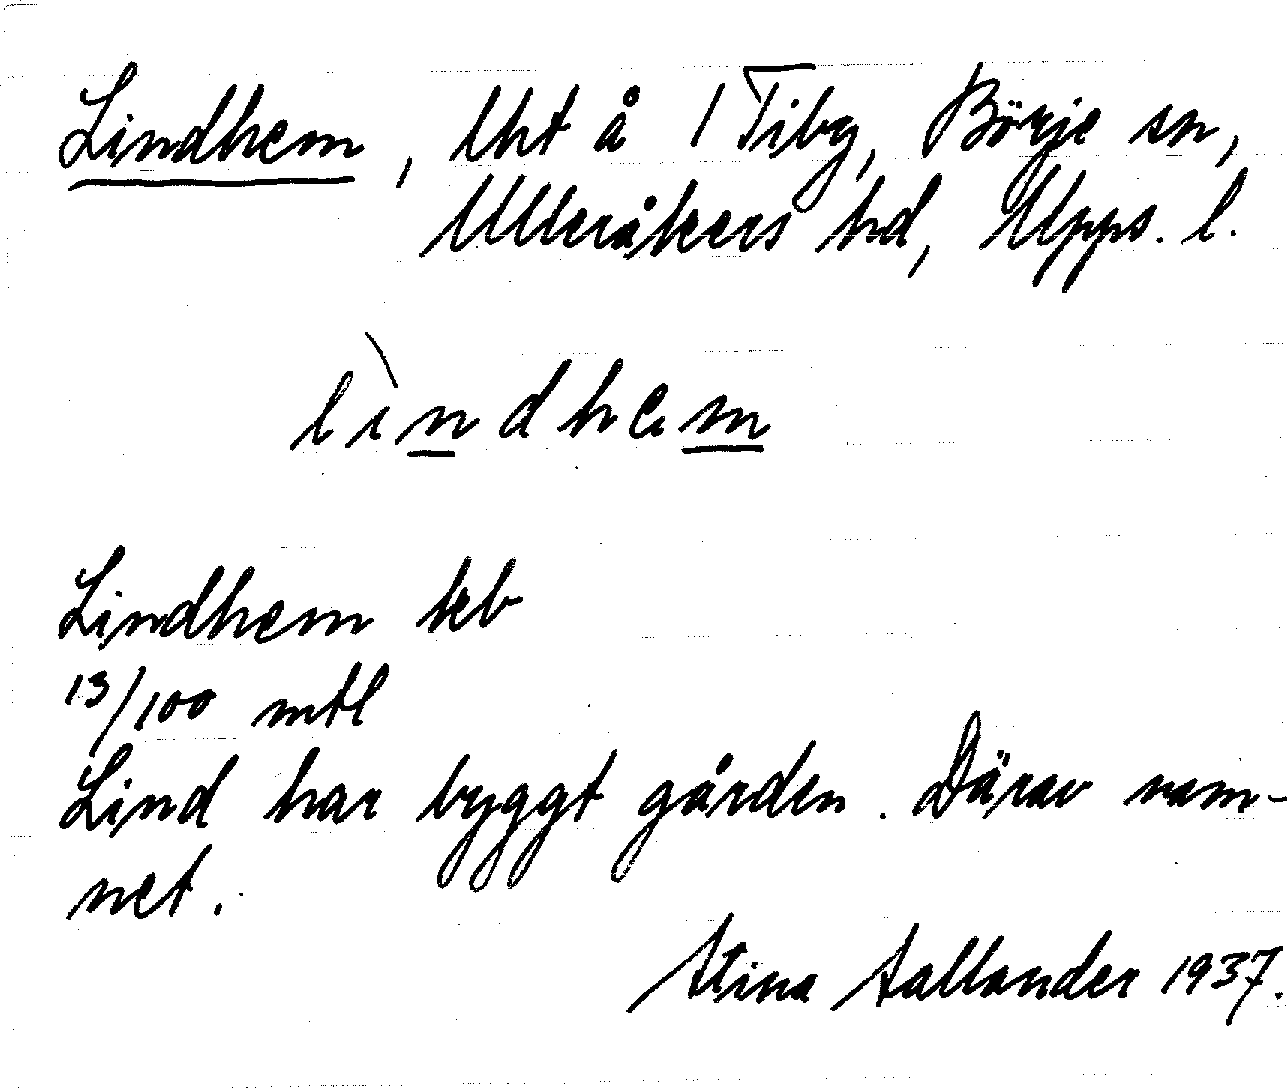 Lindhem, lht å 1 Tiby, Börje sn,
Ulleråkers hd, Upps. l.
lìndhem
Lindhem lkb
13/100 mtl
Lind har byggt gården. Därav nam-
net.
Stina Aallander 1937.